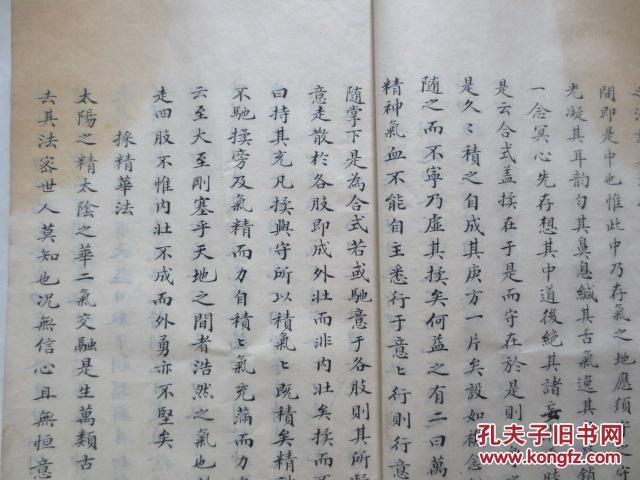 間即是中也惟此中乃存氣之地應須守
光凝其耳韵勻其鼻息緘其舌氣逸其鎖
一念冥心先存想其中道後絶其諸妄時
是云合式盖揉在于是而守在於是則
是久〻積之自成其庚方一片矣設如雜念
随之而不寧乃虛其揉矣何益之有二曰萬
精神氣血不能自主悉行于意〻行則行意
随掌下是為合式若或馳意于各肢則其所凝
意走散於各肢即成外壯而非内壯矣揉而
曰持其充凡揉與守所以積氣〻既積矣精
不馳揉旁及氣精而力自積〻氣充滿而力
云至大至剛塞乎天地之間者浩然之氣也
走四肢不惟内壯不成而外勇亦不堅矣
採精華法
太陽之精太陰之華二氣交融是生萬類古
去具法宻世人莫知也况無信心且無恒意
孔夫子旧书网